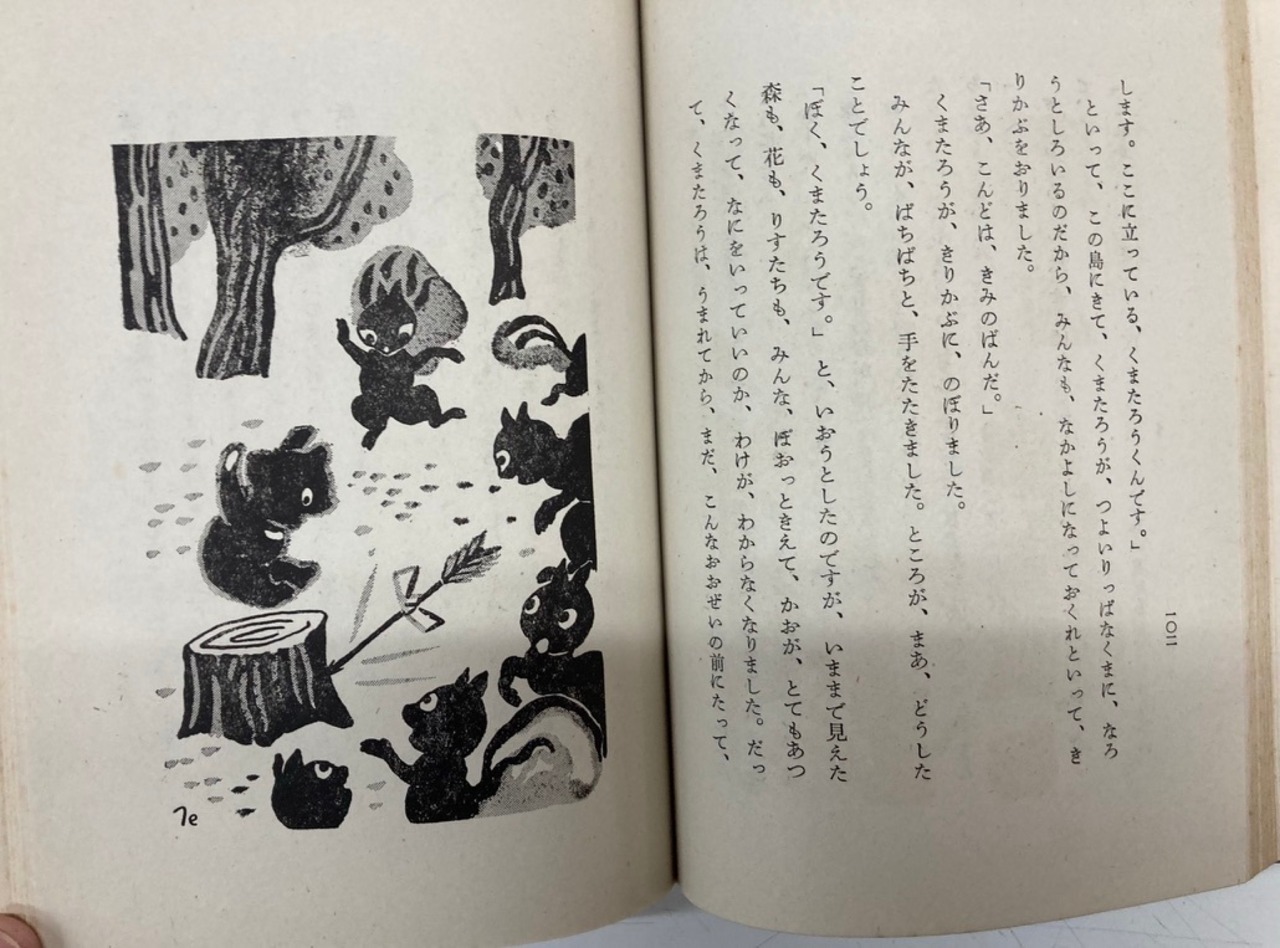 一〇二
します。ここに立っている、くまたろうくんです。」
といって、この島にきて、くまたろうが、つよいりっぱなくまに、なろ
うとしろいるのだから、みんなも、なかよしになっておくれといって、き
りかぶをおりました。
「さあ、こんどは、きみのばんだ。」
くまたろうが、きりかぶに、のぼりました。
みんなが、ぱちぱちと、手をたたきました。ところが、まあ、どうした
ことでしょう。
「ぼく、くまたろうです。」と、いおうとしたのですが、いままで見えた
森も、花も、りすたちも、みんな、ぼおっときえて、かおが、とてもあつ
くなって、なにをいっていいのか、わけが、わからなくなりました。だっ
て、くまたろうは、うまれてから、まだ、こんなおおぜいの前にたって、